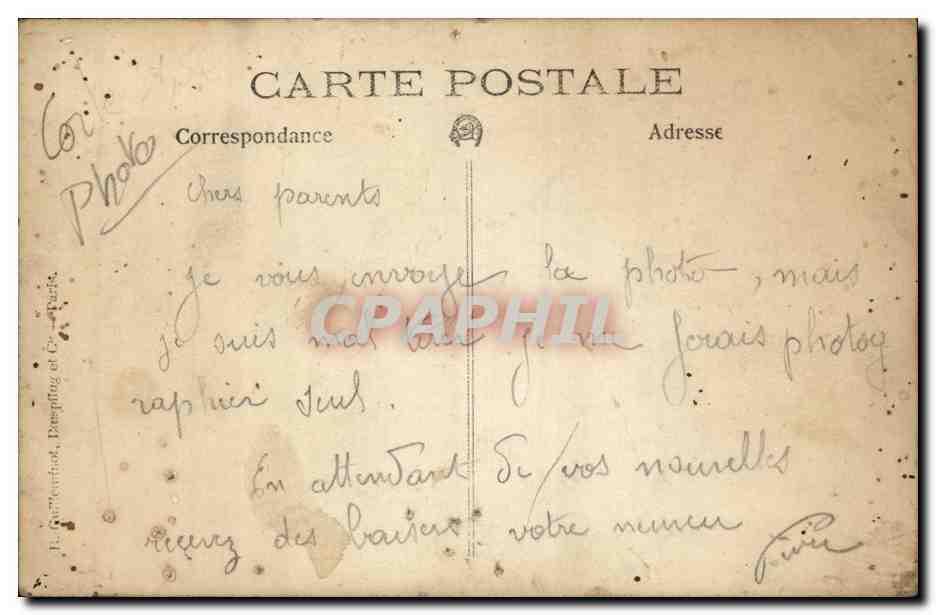 CARTE POSTALE
Correspondance
Adresse
Photo
chers parents
je vous envoye la photo, mais
je suis mal je me ferais photog
raphier seul.
En attendant de vos nouvelles
recevez des baisers votre neveu
CPAPHIL
R. Guilleminot, Bœspflug et Cie — Paris.